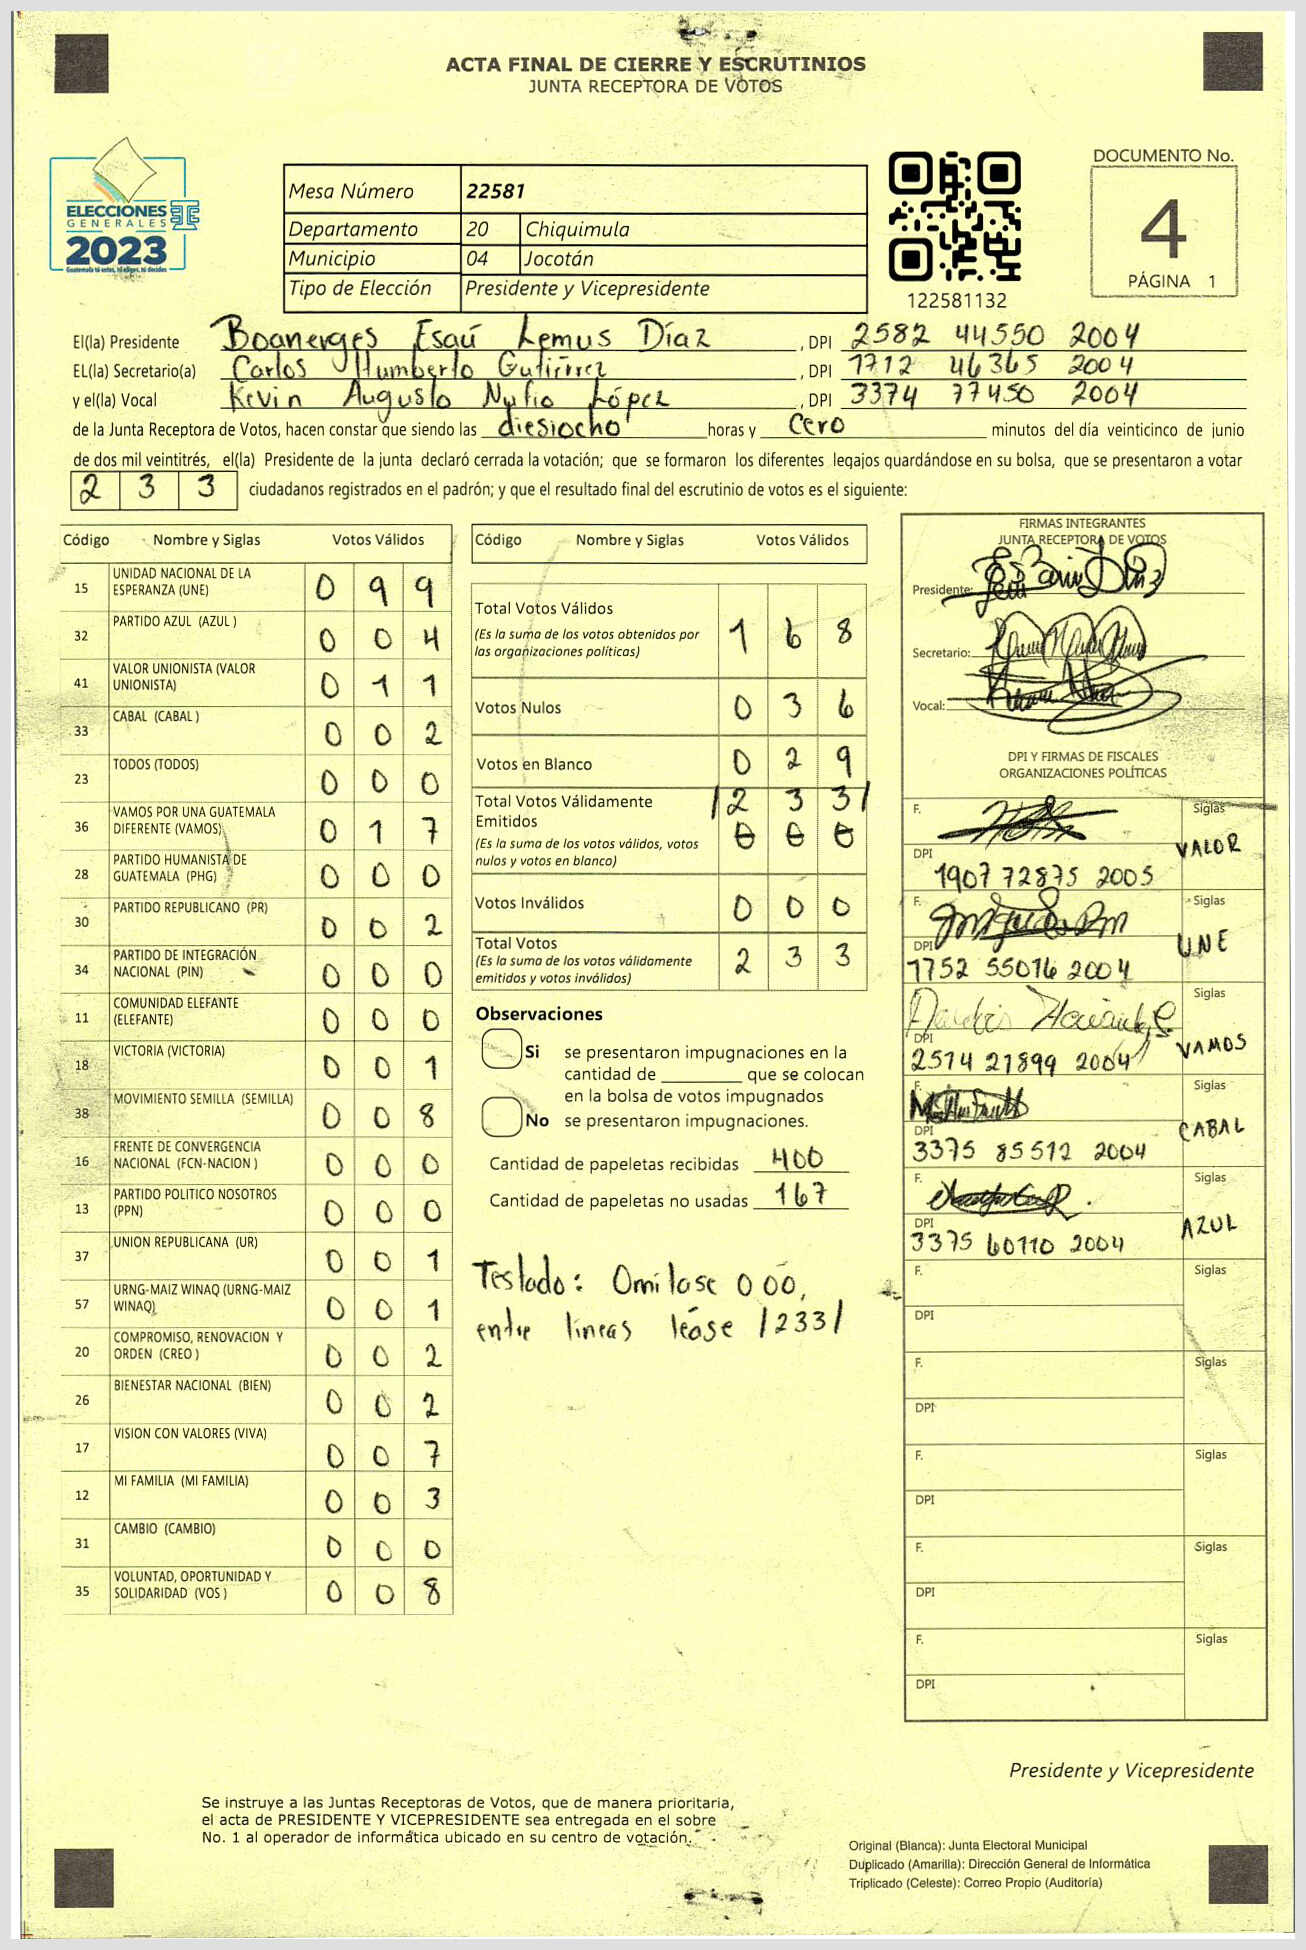 ACTA FINAL DE CIERRE Y ESCRUTINIOS
JUNTA RECEPTORA DE VOTOS
ELECCIONES
GENERALES
2023
Guatemala tú votas, tú eliges, tú decides
Mesa Número 22581
Departamento 20 Chiquimula
Municipio 04 Jocotán
Tipo de Elección Presidente y Vicepresidente
122581132
DOCUMENTO No.
4
PÁGINA 1
El(la) Presidente Boanerges Esaú Lemus Díaz , DPI 2582 44550 2004
EL(la) Secretario(a) Carlos Humberto Gutiérrez , DPI 1712 46365 2004
y el(la) Vocal Kevin Augusto Nufio López , DPI 3374 77450 2004
de la Junta Receptora de Votos, hacen constar que siendo las diesiocho horas y cero minutos del día veinticinco de junio
de dos mil veintitrés, el(la) Presidente de la junta declaró cerrada la votación; que se formaron los diferentes legajos guardándose en su bolsa, que se presentaron a votar
2 3 3 ciudadanos registrados en el padrón; y que el resultado final del escrutinio de votos es el siguiente:
Código Nombre y Siglas Votos Válidos
15 UNIDAD NACIONAL DE LA
ESPERANZA (UNE) 0 9 9
32 PARTIDO AZUL (AZUL ) 0 0 4
41 VALOR UNIONISTA (VALOR
UNIONISTA) 0 1 1
33 CABAL (CABAL ) 0 0 2
23 TODOS (TODOS) 0 0 0
36 VAMOS POR UNA GUATEMALA
DIFERENTE (VAMOS) 0 1 7
28 PARTIDO HUMANISTA DE
GUATEMALA (PHG) 0 0 0
30 PARTIDO REPUBLICANO (PR) 0 0 2
34 PARTIDO DE INTEGRACIÓN
NACIONAL (PIN) 0 0 0
11 COMUNIDAD ELEFANTE
(ELEFANTE) 0 0 0
18 VICTORIA (VICTORIA) 0 0 1
38 MOVIMIENTO SEMILLA (SEMILLA) 0 0 8
16 FRENTE DE CONVERGENCIA
NACIONAL (FCN-NACION ) 0 0 0
13 PARTIDO POLITICO NOSOTROS
(PPN) 0 0 0
37 UNION REPUBLICANA (UR) 0 0 1
57 URNG-MAIZ WINAQ (URNG-MAIZ
WINAQ) 0 0 1
20 COMPROMISO, RENOVACION Y
ORDEN (CREO ) 0 0 2
26 BIENESTAR NACIONAL (BIEN) 0 0 2
17 VISION CON VALORES (VIVA) 0 0 7
12 MI FAMILIA (MI FAMILIA) 0 0 3
31 CAMBIO (CAMBIO) 0 0 0
35 VOLUNTAD, OPORTUNIDAD Y
SOLIDARIDAD (VOS ) 0 0 8
Código Nombre y Siglas Votos Válidos
Total Votos Válidos
(Es la suma de los votos obtenidos por
las organizaciones políticas) 1 6 8
Votos Nulos 0 3 6
Votos en Blanco 0 2 9
Total Votos Válidamente /2 3 3/
Emitidos 0 0 0
(Es la suma de los votos válidos, votos
nulos y votos en blanco)
Votos Inválidos 0 0 0
Total Votos
(Es la suma de los votos válidamente
emitidos y votos inválidos) 2 3 3
Observaciones
Si se presentaron impugnaciones en la
cantidad de ________ que se colocan
en la bolsa de votos impugnados
No se presentaron impugnaciones.
Cantidad de papeletas recibidas 400
Cantidad de papeletas no usadas 167
Teslado: Omilase 000,
entre líneas léase /233/
FIRMAS INTEGRANTES
JUNTA RECEPTORA DE VOTOS
Presidente:
Secretario:
Vocal:
DPI Y FIRMAS DE FISCALES
ORGANIZACIONES POLÍTICAS
F. Siglas
VALOR
DPI
1907 72875 2005
F. Siglas
UNE
DPI
1752 55016 2004
Siglas
VAMOS
DPI
2514 21899 2004
F. Siglas
CABAL
DPI
3375 85512 2004
F. Siglas
AZUL
DPI
3375 60110 2004
F. Siglas
DPI
F. Siglas
DPI
F. Siglas
DPI
F. Siglas
DPI
F. Siglas
DPI
Presidente y Vicepresidente
Se instruye a las Juntas Receptoras de Votos, que de manera prioritaria,
el acta de PRESIDENTE Y VICEPRESIDENTE sea entregada en el sobre
No. 1 al operador de informática ubicado en su centro de votación.
Original (Blanca): Junta Electoral Municipal
Duplicado (Amarilla): Dirección General de Informática
Triplicado (Celeste): Correo Propio (Auditoría)